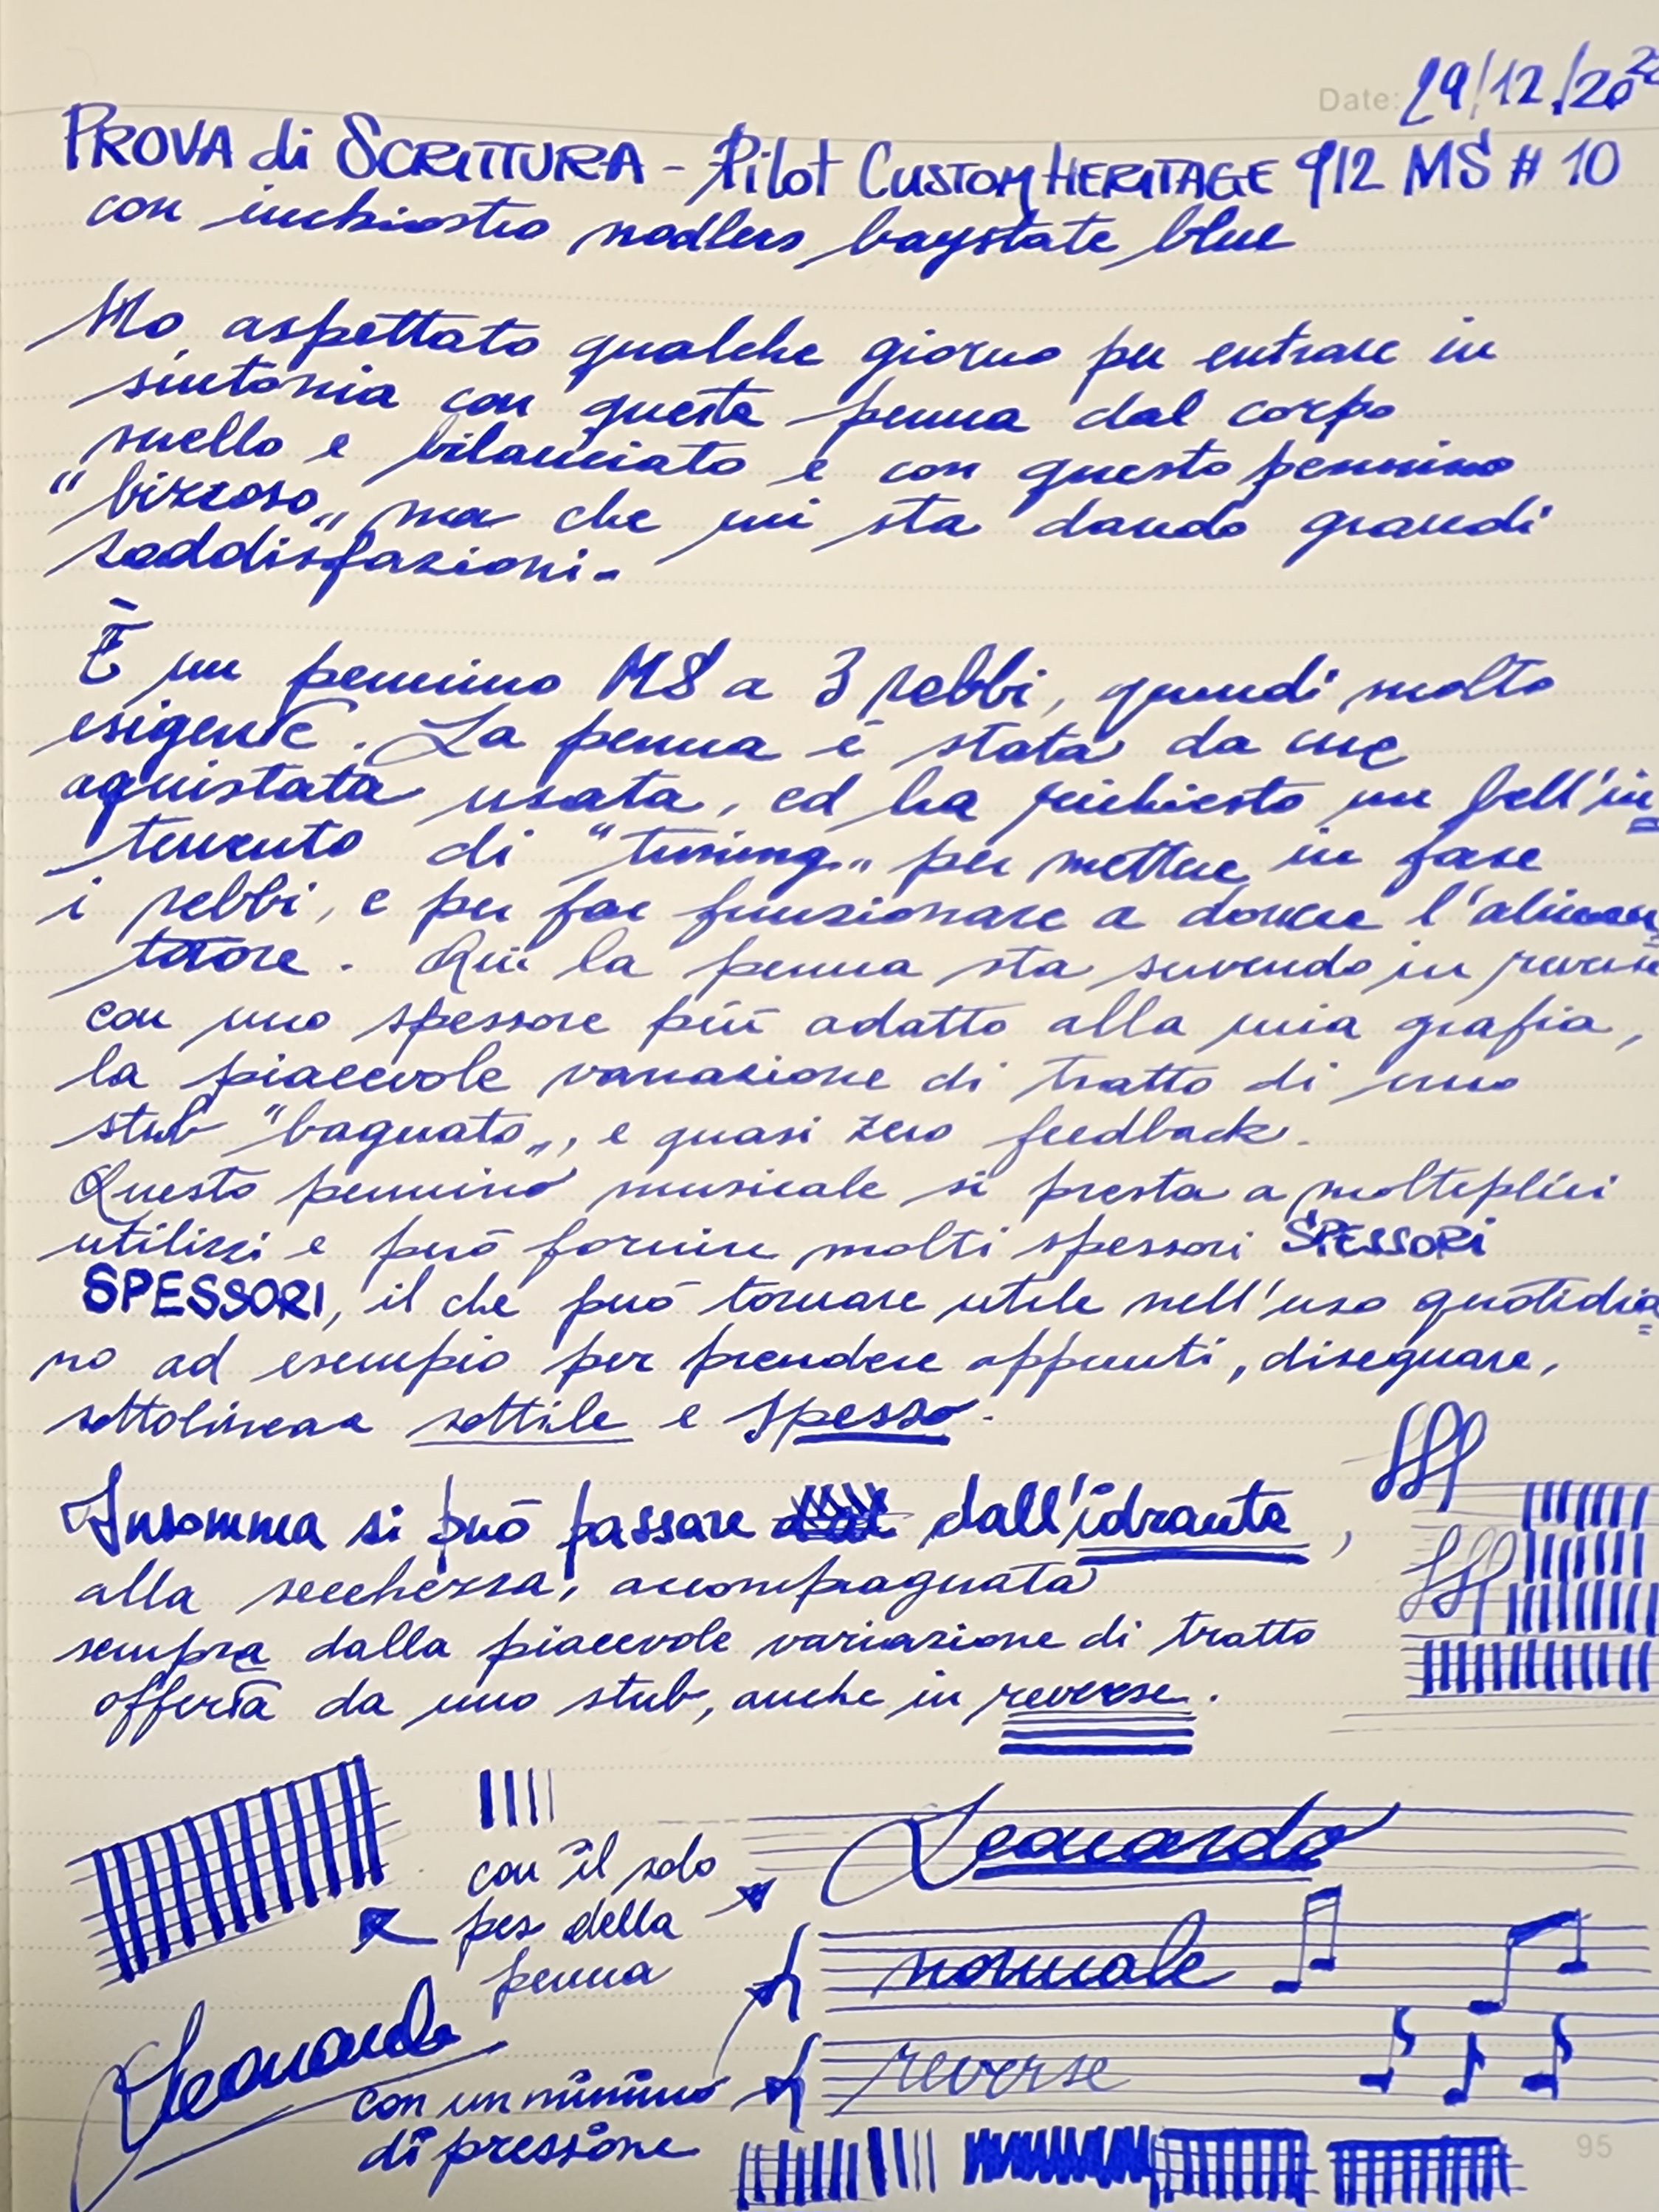 Date: 29/12/2022
PROVA di SCRITTURA - Pilot CUSTOM HERITAGE 912 MS # 10
con inchiostro noodlers baystate blue
Ho aspettato qualche giorno per entrare in
sintonia con questa penna dal corpo
snello e bilanciato e con questo pennino
"bizzoso" ma che mi sta dando grandi
soddisfazioni.
È un pennino MS a 3 rebbi, quindi molto
esigente. La penna è stata da me
aquistata usata, ed ha richiesto un bell'in=
tervento di "tuning" per mettere in fase
i rebbi, e per far funzionare a dovere l'alimen=
tatore. Qui la penna sta scrivendo in reverse
con uno spessore più adatto alla mia grafia,
la piacevole variazione di tratto di uno
stub "bagnato", e quasi zero feedback.
Questo pennino musicale si presta a molteplici
utilizzi e può fornire molti spessori SPESSORI
SPESSORI, il che può tornare utile nell'uso quotidia=
no ad esempio per prendere appunti, disegnare,
sottolinear sottile e spesso.
Insomma si può passare dall'idrante,
alla secchezza, accompagnata
sempre dalla piacevole variazione di tratto
offerta da uno stub, anche in reverse.
con il solo
pes della
penna
Leonardo
normale
reverse
Leonardo
con un minimo
di pressione
95